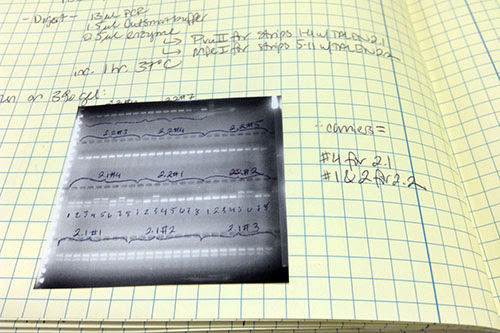 - Digest - 13 ul PCR
1.5 ul Cutsmart buffer
0.5 ul enzyme
↳ PvuII for strips 1-4 w/ TALEN 2.1
↳ NdeI for strips 5-11 w/ TALEN 2.2
inc. 1 hr 37°C
on 3% gel:
2.2#7
2.2#3 2.2#4 2.2#5
2.1#4 2.2#1 2.2#3
1 2 3 4 5 6 7 8 1 2 3 4 5 6 7 8 1 2 3 4 5 6 7 8
2.1#1 2.1#2 2.1#3
carriers =
#4 for 2.1
#1 & 2 for 2.2